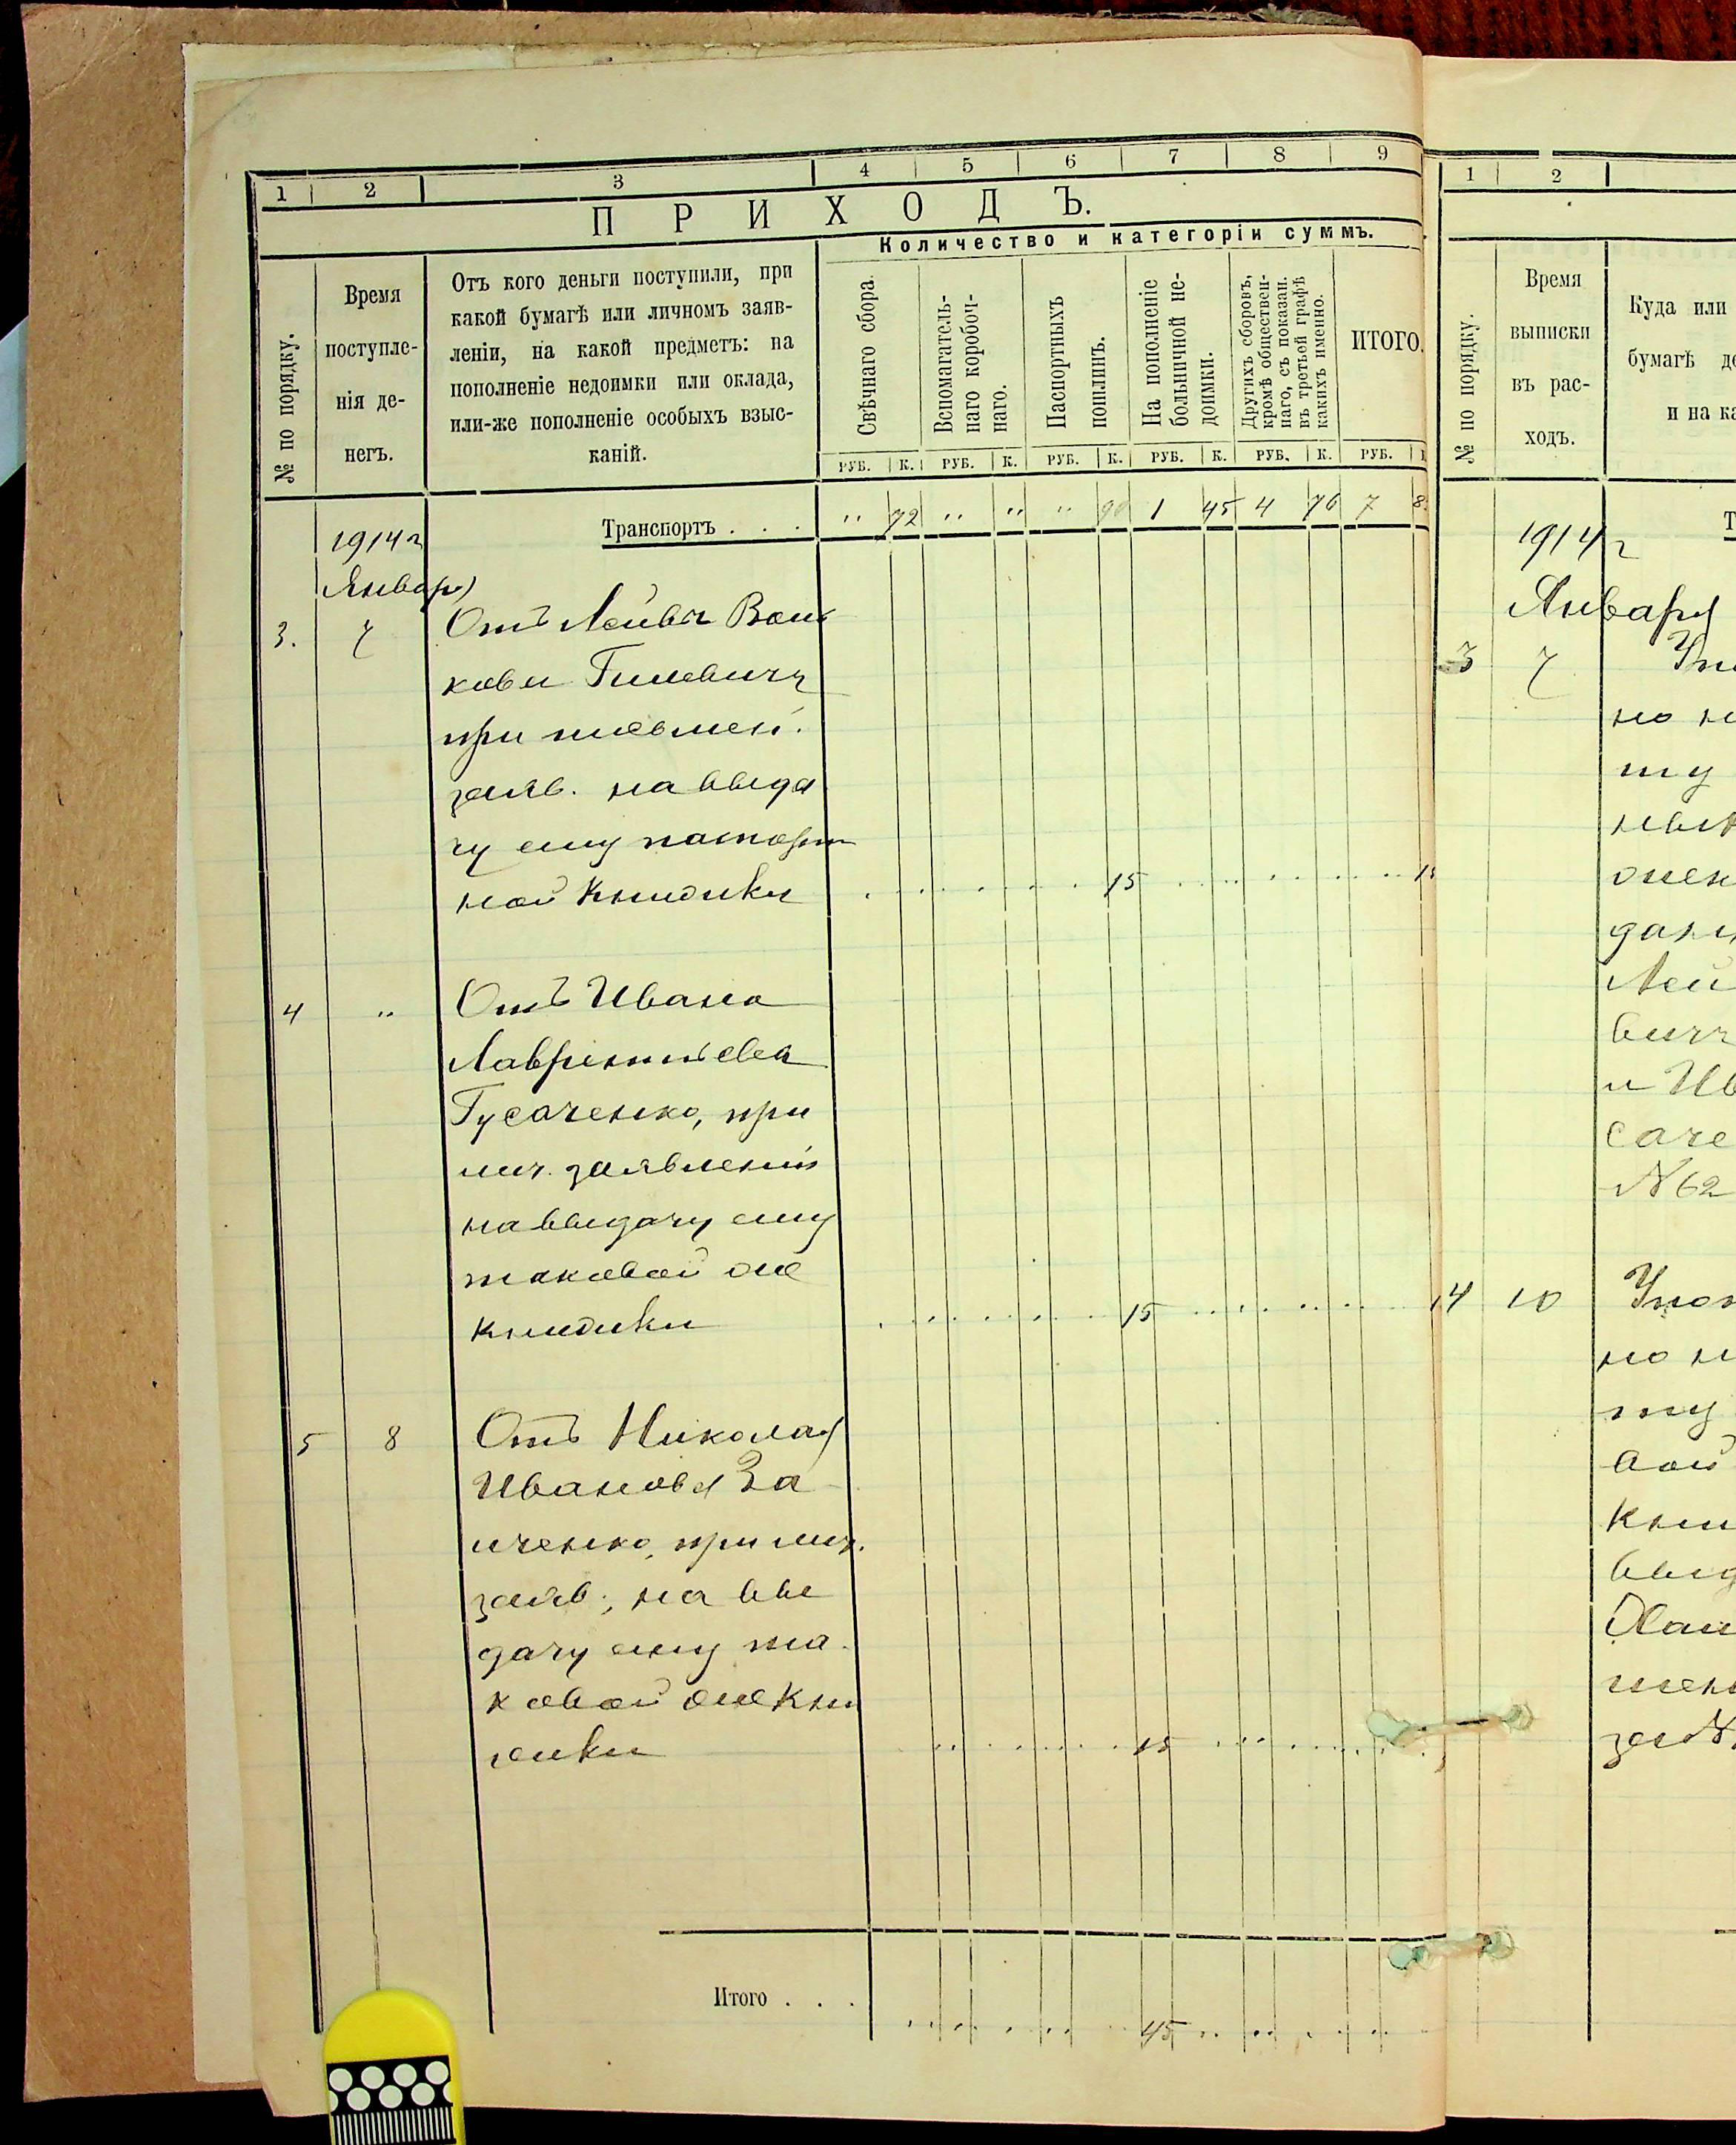 1 2 3 4 5 6 7 8 9
ПРИХОДЪ.
Количество и категоріи суммъ.
№ по порядку.
Время
поступле-
нія де-
негъ.
Отъ кого деньги поступили, при
какой бумагѣ или личномъ заяв-
леніи, на какой предметъ: на
пополненіе недоимки или оклада,
или-же пополненіе особыхъ взыс-
каній.
Свѣчнаго сбора.
Вспомагатель-
наго коробоч-
наго.
Паспортныхъ
пошлинъ.
На пополненіе
больничной не-
доимки.
Другихъ сборовъ,
кромѣ обществен-
наго, съ показан.
въ третьей графѣ
какихъ именно.
ИТОГО.
РУБ. К. РУБ. К. РУБ. К. РУБ. К. РУБ. К. РУБ.
Транспортъ . . . " 72 " " " 90 1 45 4 76 7 8
1914 г
Январь
3. 7 Отъ Лейбы
Гилевича
при письмен.
заяв. на выда
чу ему паспорт
ной книжки 15 15
4 " Отъ Ивана
Лаврентіева
Гусаченко, при
лич. заявленіи
на выдачу ему
таковой же
книжки 15
5 8 Отъ Николая
Иванова За
иченко, при лич.
заяв., на вы
дачу ему та
ковой же кни
жки 15
Итого . . . 45
1 2
№ по порядку.
Время
выписки
въ рас-
ходъ.
Куда или
бумагѣ
и на
1914 г
Января
3 7
но
ту
дан
Лей
вич
и Ив
саче
№ 62
4 10
но
ту
вой
кни
выд